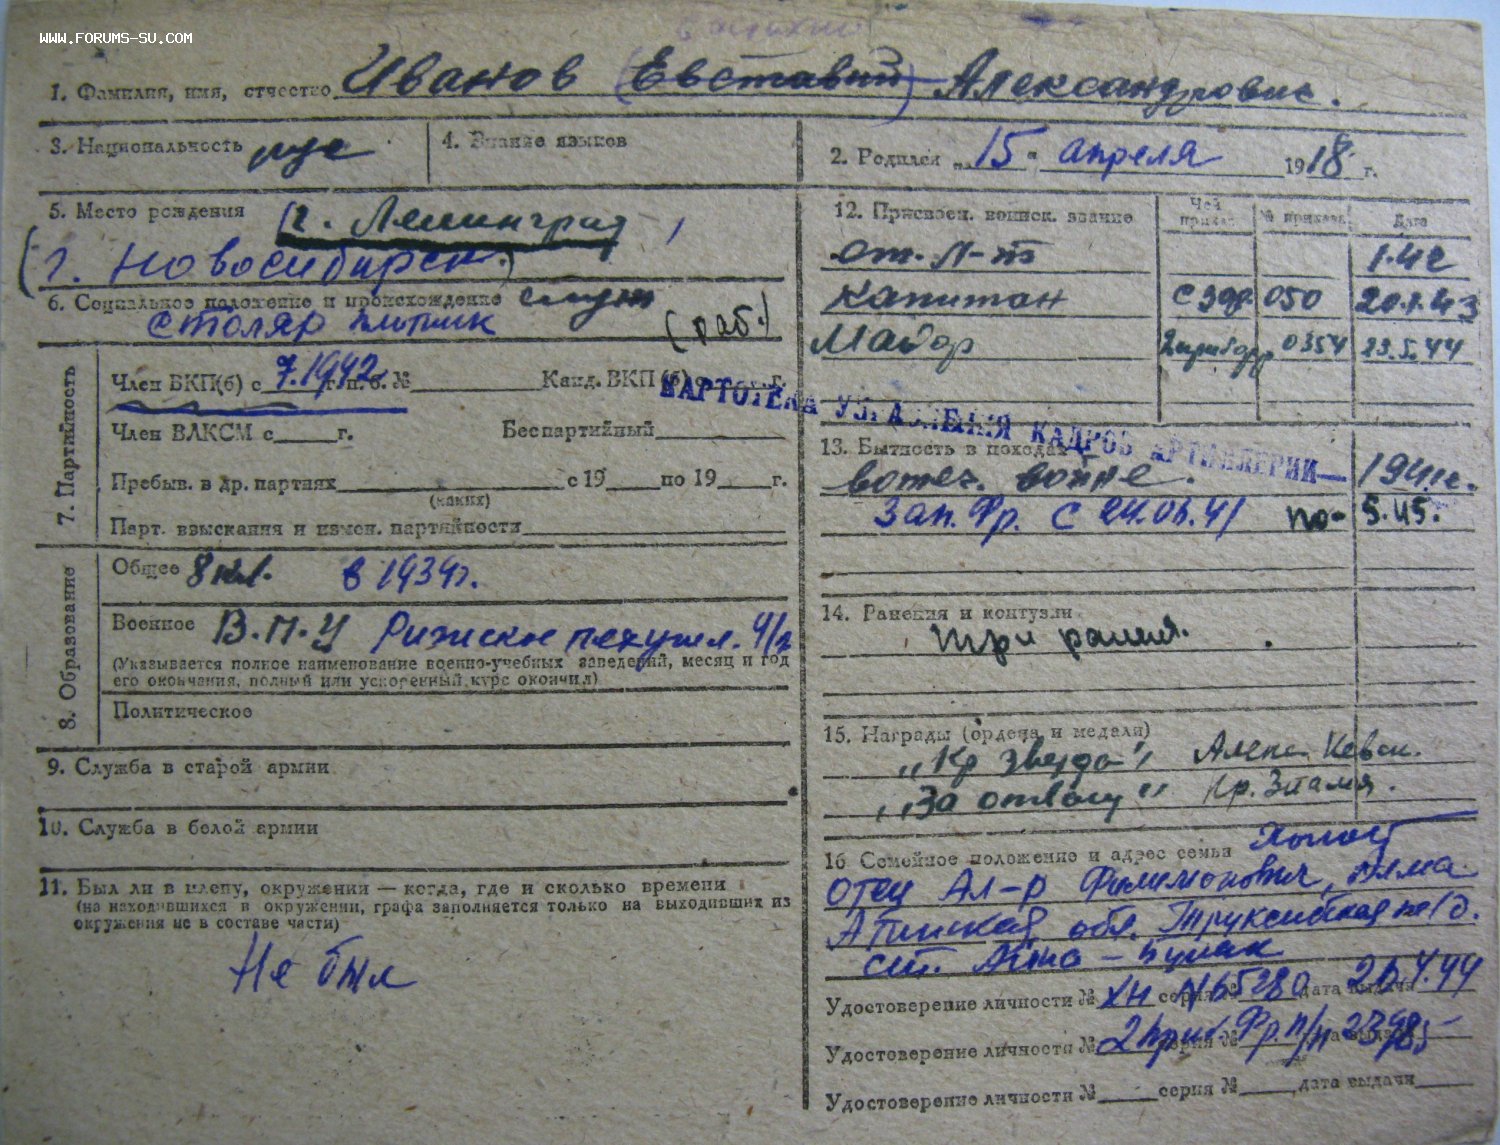 WWW.FORUMS-SU.COM
1. Фамилия, имя, отчество Иванов (Евставий) Александрович.
3. Национальность рус
4. Знание языков
2. Родился „15" апреля 1918 г.
5. Место рождения г. Ленинград
(г. Новосибирск.)
6. Социальное положение и происхождение служ
столяр (раб.)
7. Партийность
Член ВКП(б) с 7.1942 г. п. б. № Канд. ВКП(б) с г.
Член ВЛКСМ с г. Беспартийный
Пребыв. в др. партиях с 19 по 19 г.
(каких)
Парт. взыскания и измен. партийности
8. Образование
Общее 8 кл. в 1934г.
Военное В.П.У Рижское пех. учил. 41г
(Указывается полное наименование военно-учебных заведений, месяц и год
его окончания, полный или ускоренный курс окончил)
Политическое
9. Служба в старой армии
10. Служба в белой армии
11. Был ли в плену, окружении — когда, где и сколько времени
(на находившихся в окружении, графа заполняется только на выходивших из
окружения не в составе части)
Не был
12. Присвоен. воинск. звание Чей приказ № приказа Дата
ст. л-т 1.42
Капитан СЗФ 050 20.1.43
Майор 2 прибфр 0354 23.5.44
КАРТОТЕКА УПРАВЛЕНИЯ КАДРОВ АРТИЛЛЕРИИ
13. Бытность в походах
в отеч. войне. 1941г.
Зап. Фр. с 24.06.41 по - 5.45.
14. Ранения и контузии
три ранения.
15. Награды (ордена и медали)
„Кр Звезда", Алекс Невск.
„За отвагу" Кр. Знамя.
16 Семейное положение и адрес семьи Холост
отец Ал-р Филимонович, Алма-
Атинская обл. р-д.
ст. Айна - Булак
Удостоверение личности № ХН серия № N65280 дата выдачи 26.4.44
Удостоверение личности № серия № дата выдачи 2 Приб. Фр. п/п
Удостоверение личности № серия № дата выдачи